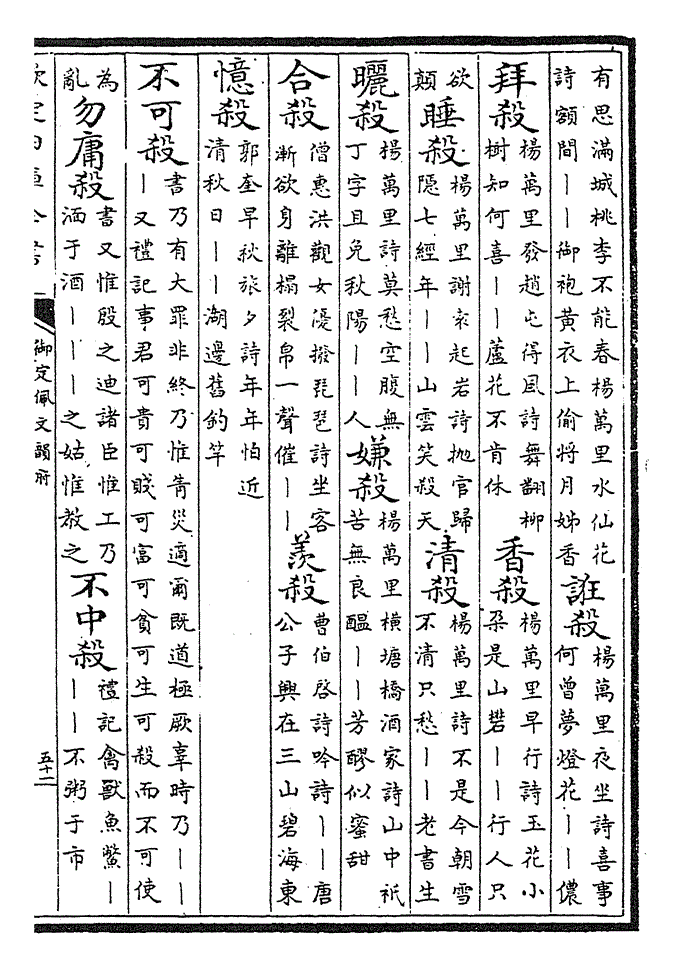 有思滿城桃李不能春楊萬里水仙花
詩額間——御袍黃衣上偷將月姊香
誑殺
楊萬里夜坐詩喜事
何曾夢燈花——儂
拜殺
楊萬里發趙屯得風詩舞翻柳
樹知何喜——蘆花不肯休
香殺
楊萬里早行詩玉花小
朶是山礬——行人只
欲
顛
睡殺
楊萬里謝袁起岩詩拋官歸
隠七經年——山雲笑殺天
清殺
楊萬里詩不是今朝雪
不清只愁——老書生
曬殺
楊萬里詩莫愁空腹無
丁字且免秋陽——人
嫌殺
楊萬里橫塘橋酒家詩山中祇
苦無良醖——芳醪似蜜甜
合殺
僧惠洪觀女優撥琵琶詩坐客
漸欲身離榻裂帛一聲催——
羨殺
曹伯啓詩吟詩——唐
公子興在三山碧海東
憶殺
郭奎早秋旅夕詩年年怕近
清秋日——湖邊舊釣竿
不可殺
書乃有大罪非終乃惟眚災適爾既道極厥辜時乃——
—又禮記事君可貴可賤可富可貧可生可殺而不可使
為
亂
勿庸殺
書又惟殷之迪諸臣惟工乃
湎于酒———之姑惟教之
不中殺
禮記禽獸魚鱉—
——不粥于市
欽定四庫全書
御定佩文韻府
五十二